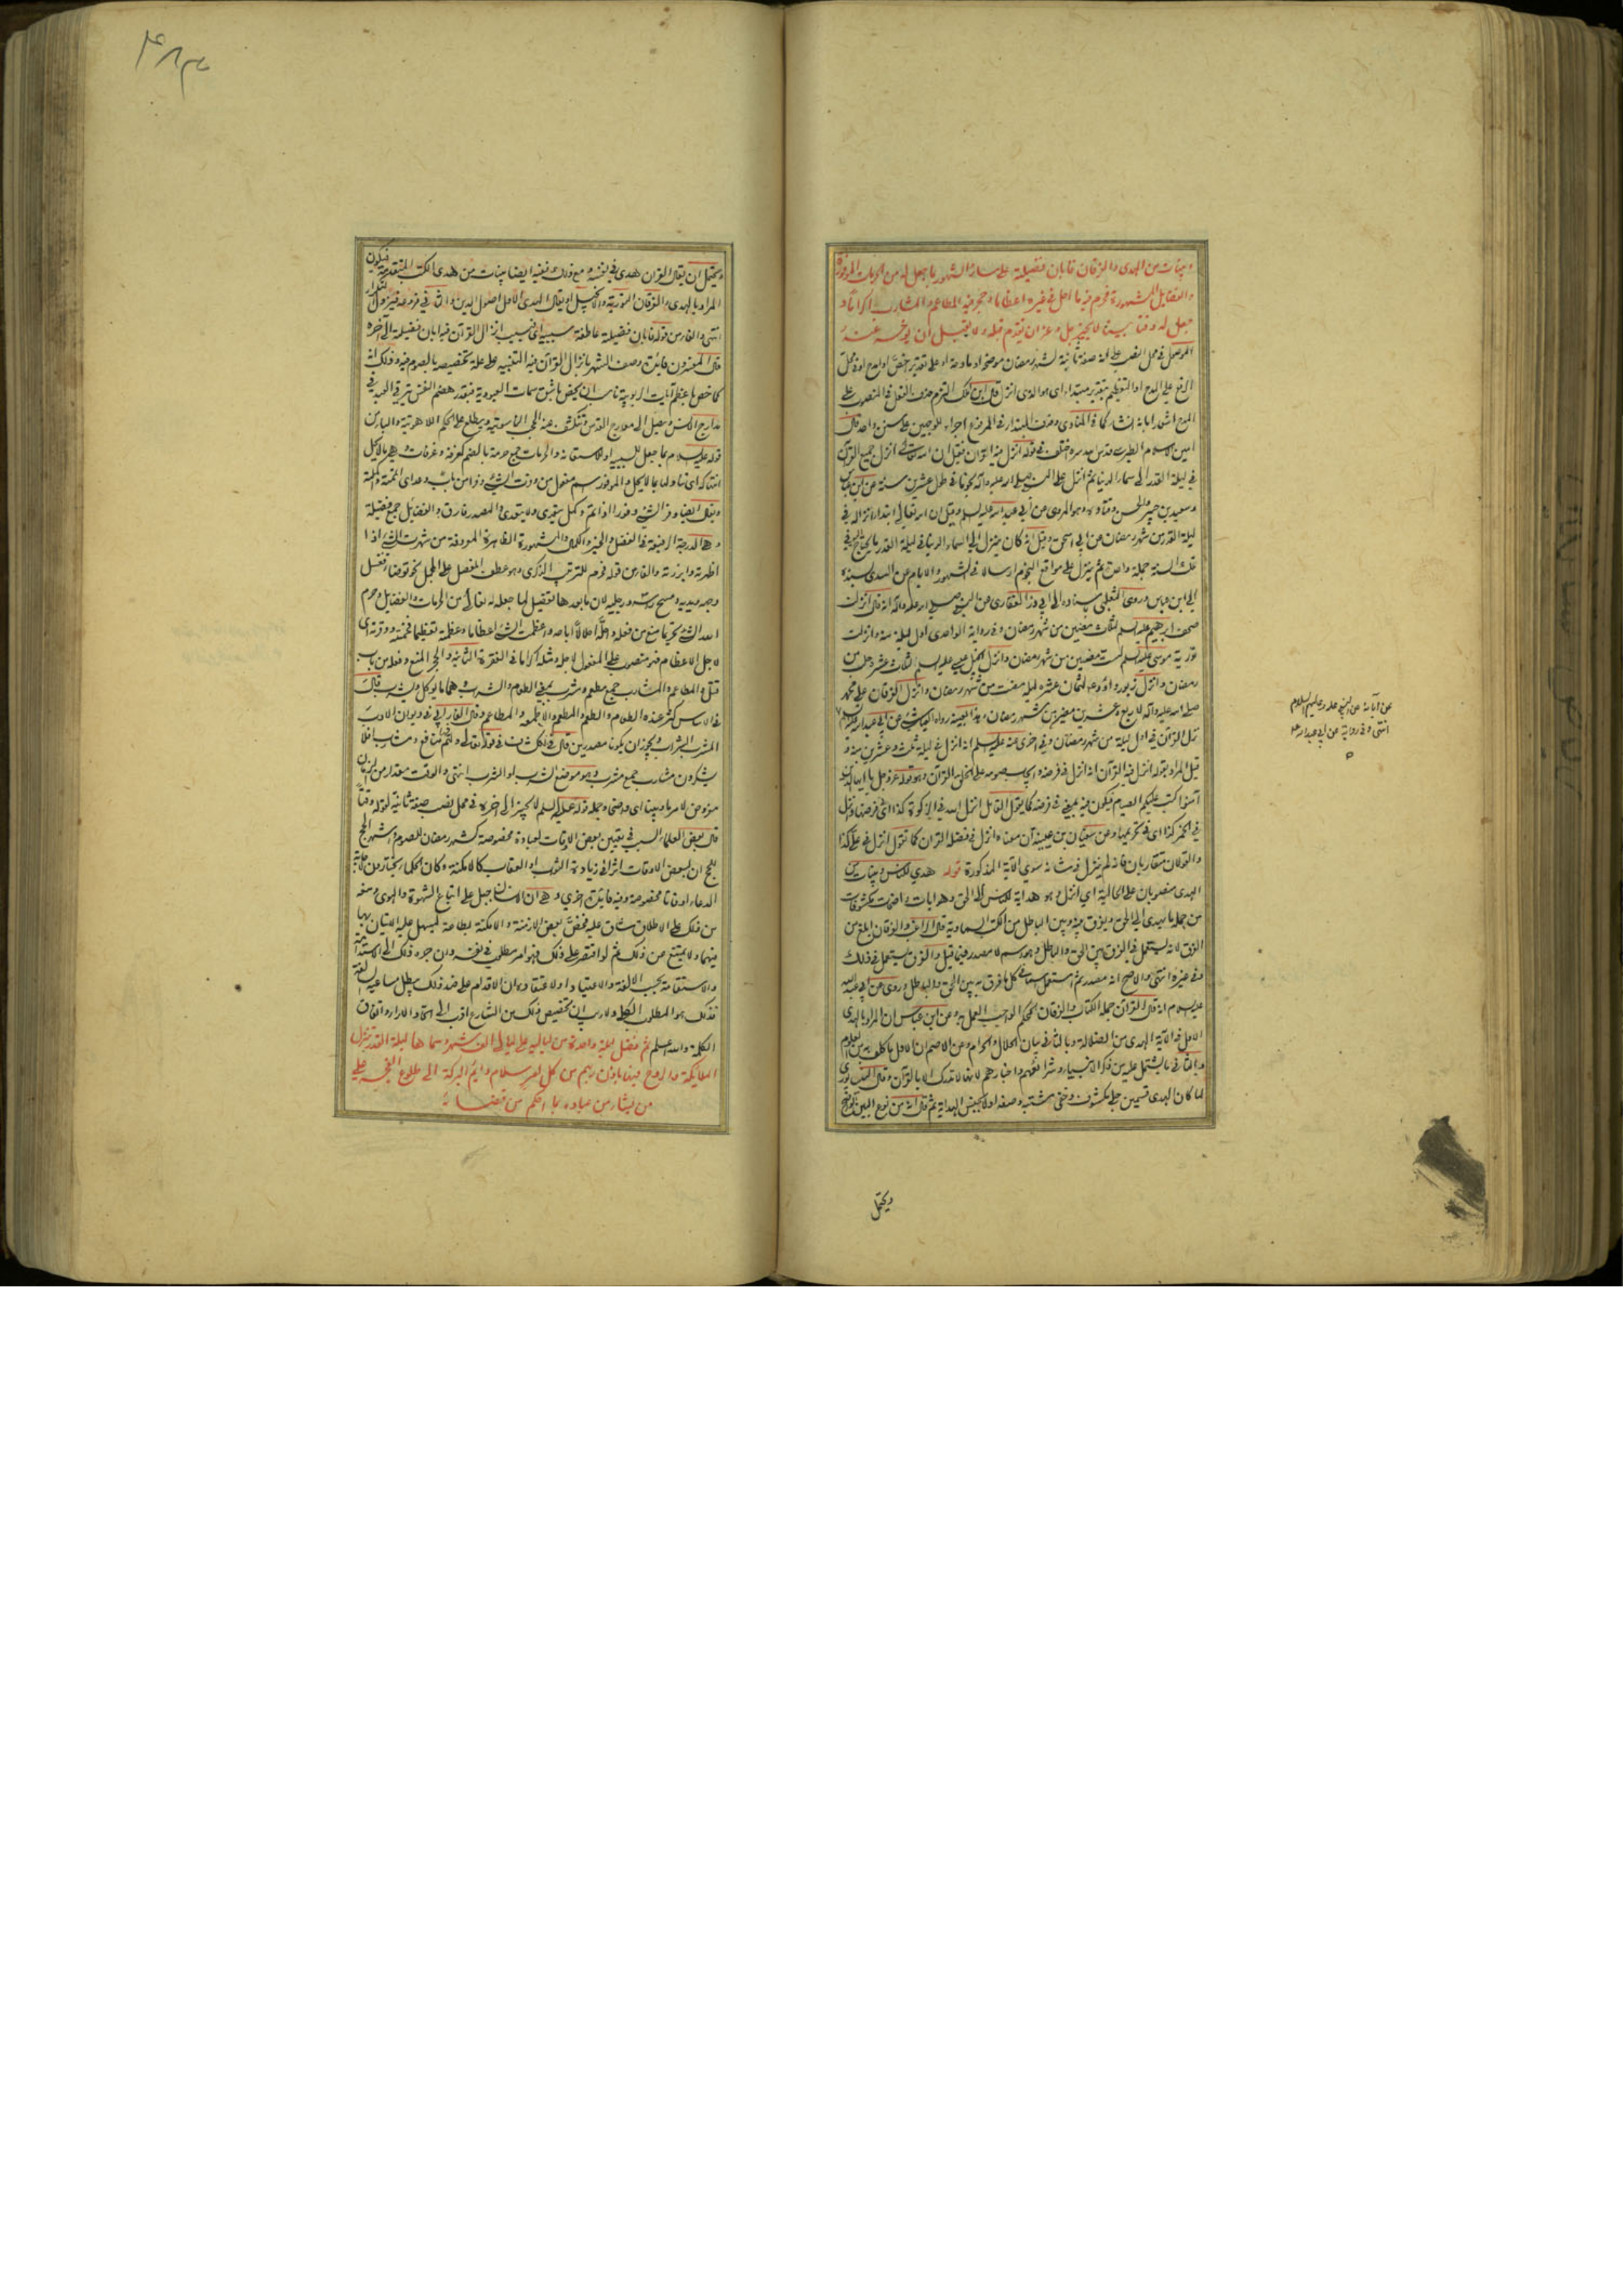 وبينات من الهدى والفرقان فابان فضيلته على سائر الشهور بما جعل له من الحرمات الموفورة
والفضايل المشهورة فحرم فيه ما احل في غيره اعظاما وحجر فيه المطاعم والمشارب اكراما و
جعل له وقتا بينا لا يجيز جل وعز ان يقدم قبله ولا يقبل ان يؤخر عنه
الموصول في محل النصب على انه صفة ثانية لشهر رمضان موضحة او مادحة او على تقدير اخص او امدح او في محل
الرفع على المدح او التعظيم بتقدير مبتدا اي هو الذي انزل قال ابن مالك التزم حذف الفعل في المنصوب على
المدح اشعارا بانه انشاء كما في المنادى وحذف المبتدا في المرفوع اجراء للوجهين على سنن واحد قال
امين الاسلام الطبرسي قدس سره اختلف في قوله انزل فيه القرآن فقيل ان الله تعالى انزل جميع القرآن
في ليلة القدر الى سماء الدنيا ثم انزل على النبي صلى الله عليه وآله نجوما في طول عشرين سنة عن ابن عباس
وسعيد بن جبير والحسن وقتادة وهو المروي عن ابي عبد الله عليه السلم وقيل ان الله تعالى ابتدا انزاله في
ليلة القدر من شهر رمضان عن ابن اسحق وقيل انه كان ينزل الى السماء الدنيا في ليلة القدر ما يحتاج في
تلك السنة جملة واحدة ثم ينزل على مواقع النجوم ارسالا في الشهور والايام عن السدي يسنده
الى ابن عباس وروى الثعلبي باسناده الى ابي ذر الغفاري عن النبي صلى الله عليه وآله انه قال انزلت
صحف ابرهيم عليه السلم لثلث مضين من شهر رمضان وفي رواية الواحدي اول ليلة منه وانزلت
تورية موسى عليه السلم لست مضين من شهر رمضان وانزل انجيل عيسى عليه السلم لثلاث عشر خلت من
رمضان وانزل زبور داود لثمان عشرة ليلة مضت من شهر رمضان وانزل الفرقان على محمد
صلى الله عليه وآله لاربع وعشرين مضين من شهر رمضان وهذا بعينه رواه العياشي عن ابي عبد الله عليه السلم
نزل القرآن في اول ليلة من شهر رمضان وفي اخرى عنه عليه السلم انه انزل في ليلة ثلث وعشرين منه و
قيل المراد بقوله انزل فيه القرآن انه انزل في فرضه وايجاب صومه على الخلق القرآن وهو قوله عز وجل يا ايها الذين
آمنوا كتب عليكم الصيام فيكون فيه بمعنى في فرضه كما يقول القائل انزل الله في الزكوة كذا اي في فرضها وانزل
في الخمر كذا اي في تحريمها وعن سفيان بن عيينة ان معناه انزل في فضله القرآن كما تقول انزل في علي كذا
والقولان متقاربان فانه لم ينزل في شانه سوى الآية المذكورة قوله هدى للناس وبينات من
الهدى منصوبان على الحالية اي انزل وهو هداية للناس الى الحق وهو ايات واضحات مكشوفات
من جملة ما يهدي الى الحق ويفرق بينه وبين الباطل من الكتب السماوية قال الراغب والفرقان ابلغ من
الفرق لانه يستعمل في الفرق بين الحق والباطل وهو اسم لا مصدر فيما قيل والفرق يستعمل في ذلك
وفي غيره انتهى والاصح انه مصدر ثم استعمل اسما في كل ما فرق به بين الحق والباطل وروي عن ابي عبد الله
عليه السلام انه قال القرآن جملة الكتاب والفرقان المحكم الواجب العمل به وعن ابن عباس ان المراد بالهدى
الاول في الآية الهدى من الضلالة وبالثاني بيان الحلال والحرام وعن الاصم ان الاول ما كلف به من العلوم
وبالثاني ما يشتمل عليه من ذكر الانبياء وشرائعهم واخبارهم لانها لا تدرك الا بالقرآن وقال النيسابوري
لما كان الهدى قسمين جلي مكشوف وخفي مشتبه وصفه اولا بجنس الهداية ثم قال انه من نوع البين الواضح
ويحتمل
عن آبائه عن النبي صلى الله عليه وعليهم السلام
انتهى وفي رواية عن ابي عبد الله ع
ويحتمل ان يقال القرآن هدى في نفسه ومع ذلك ففيه ايضا بينات من هدى الكتب المتقدمة فيكون
المراد بالهدى والفرقان التورية والانجيل او يقال الهدى الاول اصول الدين والثاني فروعه فيزول التكرار
انتهى والفاء من قوله فابان فضيلته عاطفة سببية اي فبسبب انزال القرآن فيه ابان فضيلته الى آخره
قال المفسرون فائدة وصف الشهر بانزال القرآن فيه التنبيه على علة تخصيصه بالصوم فيه وذلك انه
كما خص باعظم آيات الربوبية ناسب ان يخص باشق سمات العبودية فبقدر هضم النفس يترقى العبد في
مدارج الانس ويصل الى معارج القدس وتنكشف عنه الحجب الناسوتية ويطلع على الحكم اللاهوتية والباء من
قوله عليه السلام بما جعل للسببية او للاستعانة والحرمات جمع حرمة بالضم كغرفة وغرفات وهي ما لا يحل
انتهاكه اي تناوله بما لا يحل والموفور اسم مفعول من وفرت الشيء وفرا من باب وعد اي اتممته واكملته
ويقال ايضا وفر الشيء وفورا اذا تم وكمل يتعدى ولا يتعدى والمصدر فارق والفضايل جمع فضيلة
وهي الدرجة الرفيعة في الفضل والخير والكمال والمشهورة الظاهرة المعروفة من شهرت الشيء اذا
اظهرته وابرزته والفاء من قوله فحرم للترتيب الذكري وهو عطف المفصل على المجمل نحو توضا فغسل
وجهه ويديه ومسح راسه ورجليه لان ما بعدها تفصيل لما جعله له تعالى من الحرمات والفضايل وحرم
الله الشيء تحريما منع من فعله واحله احلالا اباحه واعظمت الشيء اعظاما وعظمته تعظيما فخمته ووقرته اي
لاجل الاعظام فهو منصوب على المفعول لاجله ومثله اكراما في الفقرة الثانية والحجر المنع وفعله من باب
قتل والمطاعم والمشارب جمع مطعم ومشرب بمعنى الطعوم والشروب وهما ما يؤكل ويشرب قال
في الاساس كثر عنده الطعام والطعم والمطعم والاطعمة والمطاعم وقال الفارابي في ديوان الادب
المشرب الشراب ويجوز ان يكونا مصدرين قال في الكشاف في قوله تعالى ولهم فيها منافع ومشارب افلا
يشكرون مشارب جمع مشرب وهو موضع الشرب او الشرب انتهى والوقت مقدار من الزمان
مفروض لامر ما وبينا اي واضحا وجملة قوله عليه السلم لا يجيز الى اخره في محل نصب صفة ثانية لقوله وقتا
قال بعض العلماء السبب في تعيين بعض الاوقات لعبادة مخصوصة كشهر رمضان للصوم واشهر الحج
للحج ان لبعض الاوقات اثرا في زيادة الثواب او العقاب كالامكنة وكان الحكماء يختارون لاجابة
الدعاء اوقاتا مخصوصة وفيه فائدة اخرى وهي ان الانسان جبل على اتباع الشهوة والهوى ومنعه
من ذلك على الاطلاق شاق عليه فخص بعض الازمنة والامكنة بطاعة ليسهل عليه الاتيان بها
فيهما ولا يمتنع عن ذلك ثم لو اقتصر على ذلك فهو امر مطلوب في نفسه وان جره ذلك الى الاستدامة
والاستقامة بحسب الالفة والاعتياد او لاعتقاده ان الاقدام على ضد ذلك يبطل مساعيه السالفة
فذلك هو المطلوب الكلي ولا ريب ان تخصيص ذلك من الشارع اقرب الى اتحاد الاراء واتفاق
الكلمة والله اعلم ثم فضل ليلة واحدة من لياليه على ليالي الف شهر وسماها ليلة القدر تنزل
الملائكة والروح فيها باذن ربهم من كل امر سلام دائم البركة الى طلوع الفجر على
من يشاء من عباده بما احكم من قضائه